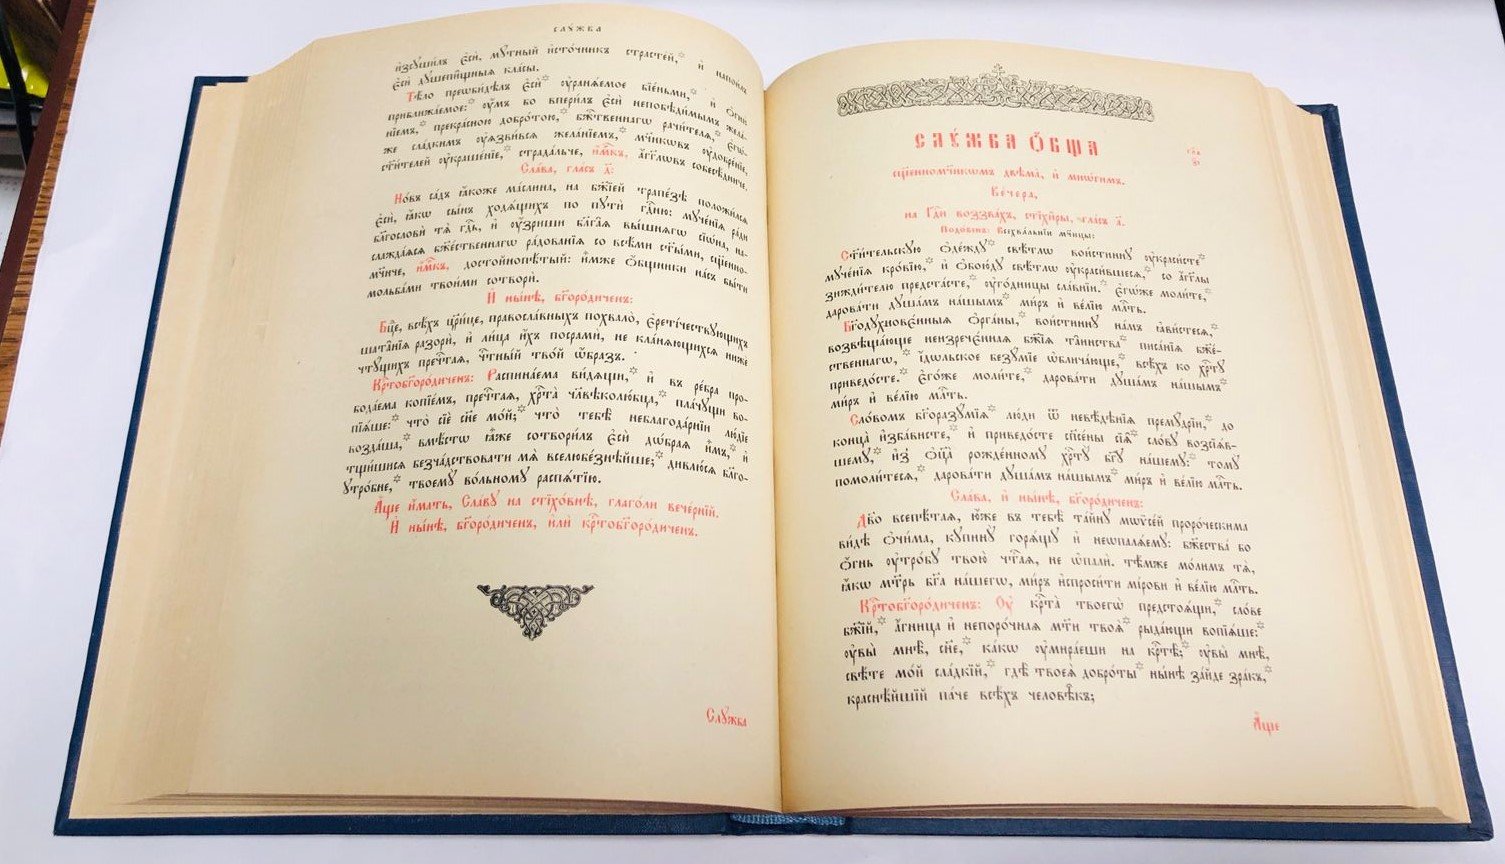 СЛꙊ́ЖБА
и҆зсꙋши́лъ є҆сѝ, мꙋ́тный и҆сто́чникъ страсте́й,* и҆ напои́лъ
є҆сѝ дꙋшепи́щныѧ кла́сы.
Тѣ́ло пред̾ви́дѣлъ є҆сѝ* ᲂу҆ранѧ́емое бїе́ньми,* и҆ ѻ҆гню̀
приближа́емое:* ᲂу҆́мъ бо впери́лъ є҆сѝ непобѣди́мымъ жела́-
нїемъ,* прекра́сною добро́тою,* бж҃е́ственнагѡ рачи́телѧ.* є҆гѡ́-
же сла́дкимъ ᲂу҆ѧзви́всѧ жела́нїемъ,* мч҃никѡвъ ᲂу҆добре́нїе,
ст҃и́телей ᲂу҆краше́нїе,* страда́льче, и҆́м҃къ, а҆́гг҃лѡвъ собесѣ́дниче.
Сла́ва, гла́съ д҃:
Но́въ са́дъ ꙗ҆́коже ма́слина, на бж҃їей трапе́зѣ положи́лсѧ
є҆сѝ, ꙗ҆́кѡ сы́нъ ходѧ́щихъ по пꙋтѝ гдⷭ҇ню: мꙋче́нїѧ ра́ди
благослови́ тѧ гдⷭ҇ь, и҆ ᲂу҆́зриши блага̑ѧ вы́шнѧгѡ сїѡ́на, на-
слажда́ѧсѧ бж҃е́ственнагѡ ра́дованїѧ со всѣ́ми ст҃ы́ми, сщ҃енно-
мч҃ниче, и҆́м҃къ, досто́йнопѣтый: и҆́мже ѻ҆́бщники на́съ бы́ти
мольба́ми твои́ми сотворѝ.
И҆ ны́нѣ, бг҃оро́диченъ:
Бцⷣе, всѣ́хъ цр҃и́це, правосла́вныхъ похвало̀, є҆рети́чествꙋющихъ
шата̑нїѧ разорѝ, и҆ ли́ца и҆́хъ посрамѝ, не кла́нѧющихсѧ нижѐ
чтꙋ́щихъ пречⷭ҇таѧ, чⷭ҇тны́й тво́й ѡ҆́бразъ.
Крⷭ҇тобг҃оро́диченъ: Распина́ема ви́дѧщи,* и҆ въ ре́бра про-
бода́ема копїе́мъ, пречⷭ҇таѧ, хрⷭ҇та̀ чл҃вѣколю́бца,* пла́чꙋщи во-
пїѧ́ше:* что̀ сїѐ сн҃е мо́й;* что̀ тебѣ̀ неблагода́рнїи лю́дїе
возда́ша,* вмѣ́стѡ ꙗ҆̀же сотвори́лъ є҆сѝ дѡ́браѧ и҆̀мъ,* и҆
тщи́шисѧ безча́дствовати мѧ̀ вселюбе́знѣйше;* дивлю́сѧ бл҃го-
ꙋтро́бне,* твоемꙋ̀ во́льномꙋ распѧ́тїю.
А҆́ще и҆́мать, Сла́вꙋ на стїхо́внѣ, глаго́ли вече́рнїй.
И҆ ны́нѣ, бг҃оро́диченъ, и҆лѝ крⷭ҇тобг҃оро́диченъ.
Слꙋ́жба
СЛꙊ́ЖБА Ѻ҆́БЩА
сщ҃енномч҃никѡмъ двѣма̀, и҆ мнѡ́гимъ.
Ве́чера,
на Гдⷭ҇и воззва́хъ, стїхи̑ры, гла́съ д҃.
Подо́бенъ: Всехва́льнїи мч҃ницы:
Ст҃и́тельскꙋю ѻ҆де́ждꙋ* свѣ́тлѡ вои́стиннꙋ ᲂу҆краси́сте*
мꙋче́нїѧ кро́вїю,* и҆ ѻ҆бою́дꙋ свѣ́тлѡ ᲂу҆краси́вшесѧ,* со а҆́гг҃лы
зижди́телю предста́сте,* ᲂу҆го́дницы сла́внїи.* є҆го́же моли́те,*
дарова́ти дꙋша́мъ на́шымъ* ми́ръ и҆ ве́лїю млⷭ҇ть.
Бг҃одꙋхнове́нныѧ ѻ҆рга́ны,* вои́стиннꙋ на́мъ ꙗ҆ви́стесѧ,*
возвѣща́юще неизрече́ннаѧ бж҃їѧ та̑инства* писа̑нїѧ бж҃е́-
ственнагѡ,* і҆́дѡльское безꙋ́мїе ѡ҆блича́юще,* всѣ́хъ ко хрⷭ҇тꙋ̀
приведо́сте.* є҆го́же моли́те,* дарова́ти дꙋша́мъ на́шымъ*
ми́ръ и҆ ве́лїю млⷭ҇ть.
Сло́вомъ бг҃оразꙋ́мїѧ* лю́ди ѿ невѣ́дѣнїѧ премꙋ́дрїи,* до
конца̀ и҆зба́висте,* и҆ приведо́сте спⷭ҇є́ны сїѧ̑* сло́вꙋ возсїѧ́в-
шемꙋ,* и҆з̾ ѻ҆ц҃а̀ рожде́нномꙋ хрⷭ҇тꙋ̀ бг҃ꙋ на́шемꙋ:* томꙋ̀
помоли́тесѧ,* дарова́ти дꙋша́мъ на́шымъ* ми́ръ и҆ ве́лїю млⷭ҇ть.
Сла́ва, и҆ ны́нѣ, бг҃оро́диченъ:
Дв҃о всепѣ́таѧ, ю҆́же въ тебѣ̀ та́йнꙋ мѡѷсе́й проро́ческима
ви́дѣ ѻ҆чи́ма, кꙋпинꙋ̀ горѧ́щꙋ и҆ неѡпалѧ́емꙋ: бж҃ества̀ бо
ѻ҆́гнь ᲂу҆тро́бꙋ твою̀ чⷭ҇таѧ, не ѡ҆палѝ. тѣ́мже мо́лимъ тѧ̀,
ꙗ҆́кѡ мт҃рь бг҃а на́шегѡ, ми́ръ и҆спроси́ти мі́рови и҆ ве́лїю млⷭ҇ть.
Крⷭ҇тобг҃оро́диченъ: Оу҆ крⷭ҇та̀ твоегѡ̀ предстоѧ́щи,* сло́ве
бж҃їй,* а҆́гница и҆ непоро́чнаѧ мт҃и твоѧ̀* рыда́ющи вопїѧ́ше:*
ᲂу҆вы̀ мнѣ̀, сн҃е,* ка́кѡ ᲂу҆мира́еши на крⷭ҇тѣ̀;* ᲂу҆вы̀ мнѣ̀,
свѣ́те мо́й сла́дкїй,* гдѣ̀ твоеѧ̀ добро́ты* ны́нѣ за́йде зра́къ,*
краснѣ́йшїй па́че всѣ́хъ человѣ̑къ;
А҆́ще